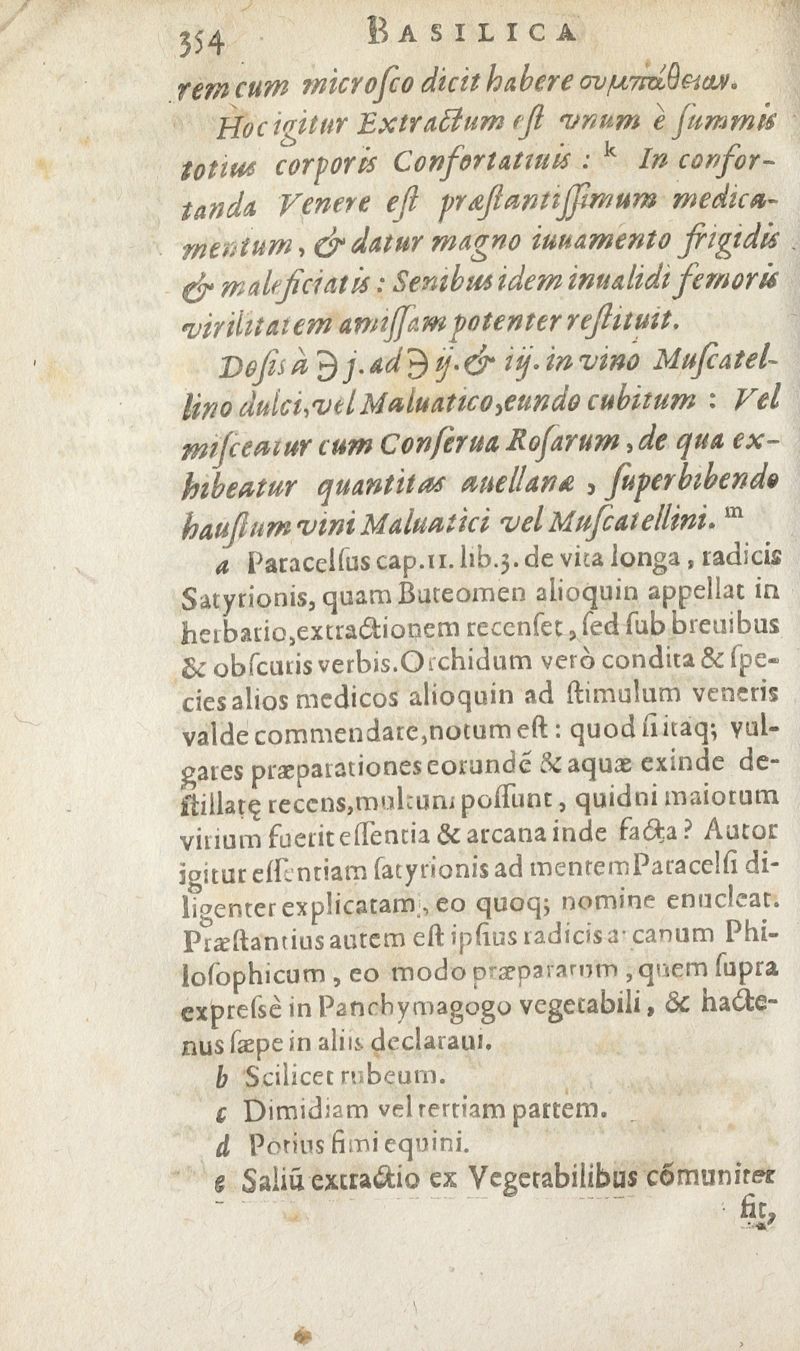 354 BASILICA
rem cum microſco dicit habere συμπάθειαν.
Hoc igitur Extractum eſt vnum è ſummis
totius corporis Confortatiuis : k In confor-
tanda Venere eſt præſtantiſſimum medica-
mentum, & datur magno iuuamento frigidis
& maleficiatis : Senibus idem inualidi femoris
virilitatem amiſſam potenter reſtituit.
Doſis à ℈ j. ad ℈ ij. & iij. in vino Muſcatel-
lino dulci, vel Maluatico, eundo cubitum : Vel
miſceatur cum Conſerua Roſarum, de qua ex-
hibeatur quantitas auellanæ , ſuperbibendo
hauſtum vini Maluatici vel Muſcatellini. m
a Paracelſus cap.11. lib.3. de vita longa, radicis
Satyrionis, quam Buteomen alioquin appellat in
herbario, extractionem recenſet, ſed ſub breuibus
& obſcuris verbis. Orchidum verò condita & ſpe-
cies alios medicos alioquin ad ſtimulum veneris
valde commendare, notum eſt : quod ſi itaq; vul-
gares præparationes eorundē & aquæ exinde de-
ſtillatę recens, multum poſſunt, quidni maiorum
virium fuerit eſſentia & arcana inde facta ? Autor
igitur eſſentiam ſatyrionis ad mentem Paracelſi di-
ligenter explicatam, eo quoq; nomine enucleat.
Præſtantius autem eſt ipſius radicis arcanum Phi-
loſophicum , eo modo præpararum , quem ſupra
expreſsè in Panchymagogo vegetabili, & hacte-
nus ſæpe in aliis declaraui.
b Scilicet rubeum.
c Dimidiam vel tertiam partem.
d Potius fimi equini.
e Saliū extractio ex Vegetabilibus cōmuniter
fit,